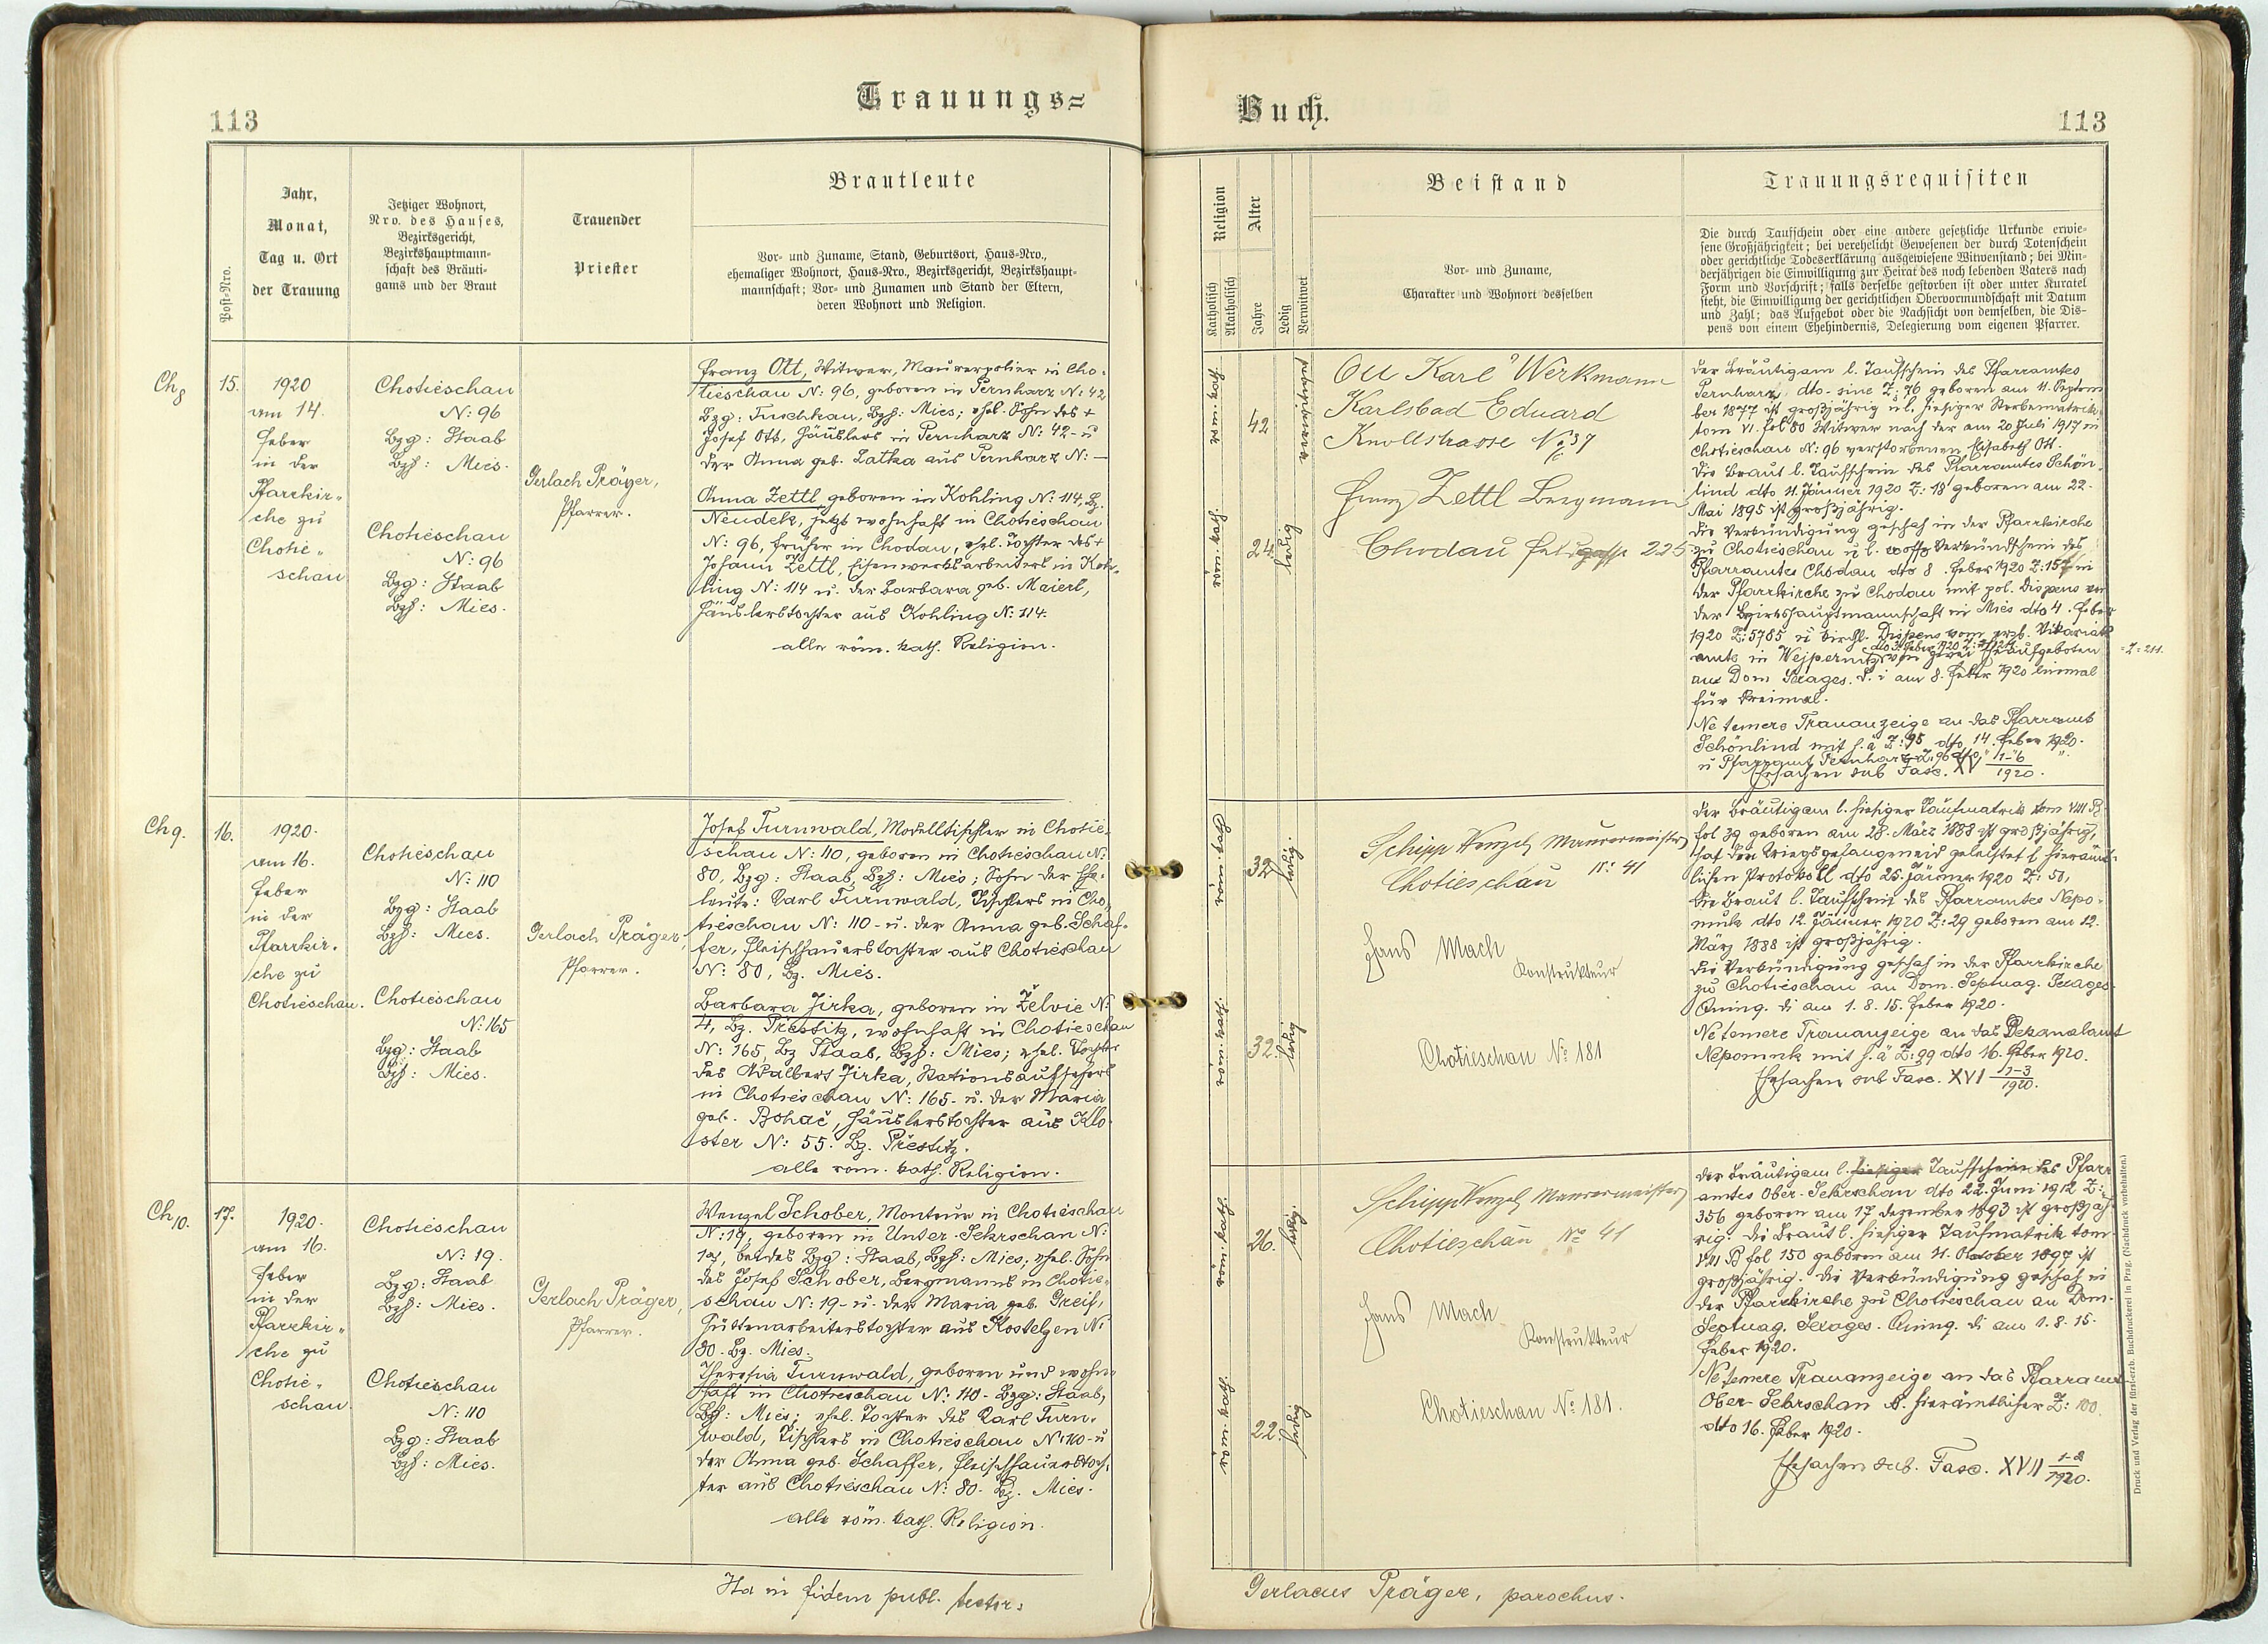 Trauungs=
113
Post-Nro.
Jahr,
Monat,
Tag u. Ort
der Trauung
Jetziger Wohnort,
Nro. des Hauses,
Bezirksgericht,
Bezirkshauptmann-
schaft des Bräuti-
gams und der Braut
Trauender
Priester
Brautleute
Vor- und Zuname, Stand, Geburtsort, Haus-Nro.,
ehemaliger Wohnort, Haus-Nro., Bezirksgericht, Bezirkshaupt-
mannschaft; Vor- und Zunamen und Stand der Eltern,
deren Wohnort und Religion.
Ch8
15.
1920
am 14.
Feber
in der
Pfarrkir-
che zu
Chotie-
schau
Chotieschau
N: 96
Bzg: Staab
Bzh: Mies.
Chotieschau
N: 96
Bzg: Staab
Bzh: Mies.
Gerlach Präger,
Pfarrer.
Franz Ott, Witwer, Maurerpolier in Cho-
tieschau N: 96, geboren in Pernharz N: 42
Bzg: Tuschkau, Bzh: Mies; ehel. Sohn des +
Josef Ott, Häuslers in Pernharz N: 42- u
der Anna geb. Latka aus Pernharz N: —
Anna Zettl, geboren in Kohling N: 114, Bz.
Neudek, jetzt wohnhaft in Chotieschau
N: 96, früher in Chodau, ehel. Tochter des +
Johann Zettl, Eisenwerksarbeiters in Koh-
ling N: 114 u. der Barbara geb. Maierl,
Häuslerstochter aus Kohling N: 114.
alle röm. kath. Religion.
Ch 9.
16.
1920.
am 16.
Feber
in der
Pfarrkir-
che zu
Chotieschau.
Chotieschau
N: 110
Bzg: Staab
Bzh: Mies.
Chotieschau
N: 165
Bzg: Staab
Bzh: Mies.
Gerlach Präger,
Pfarrer.
Josef Turnwald, Modelltischler in Chotie-
schau N: 110, geboren in Chotieschau N:
80, Bzg: Staab, Bzh: Mies; Sohn der Ehe-
leute: Karl Turnwald, Tischlers in Cho-
tieschau N: 110 - u. der Anna geb. Schaf-
fer, Fleischhauerstochter aus Chotieschau
N: 80, Bz. Mies.
Barbara Jirka, geboren in Želvic N:
4, Bz. Přestitz, wohnhaft in Chotieschau
N: 165, Bz Staab, Bzh: Mies; ehel. Tochter
des Adalbert Jirka, Stationsaufsehers
in Chotieschau N: 165- u. der Maria
geb. Bohač, Häuslerstochter aus Klo-
ster N: 55. Bz. Přestitz.
alle röm. kath. Religion.
Ch 10.
17.
1920.
am 16.
Feber
in der
Pfarrkir-
che zu
Chotie-
schau.
Chotieschau
N: 19.
Bzg: Staab
Bzh: Mies.
Chotieschau
N: 110
Bzg: Staab
Bzh: Mies.
Gerlach Präger,
Pfarrer.
Wenzel Schober, Monteur in Chotieschau
N: 19, geboren in Unter-Sekrschan N:
19, beides Bzg: Staab, Bzh: Mies; ehel. Sohn
des Josef Schober, Bergmanns in Chotie-
schau N: 19- u. der Maria geb. Greif,
Hüttenarbeiterstochter aus Kostelzen N:
30. Bz. Mies.
Theresia Turnwald, geboren und wohn-
haft in Chotieschau N: 110 - Bzg: Staab,
Bzh: Mies; ehel. Tochter des Karl Turn-
wald, Tischlers in Chotieschau N: 110- u
der Anna geb. Schaffer, Fleischhauerstoch-
ter aus Chotieschau N: 80- Bz. Mies.
alle röm. kath. Religion.
Ita in fidem publ. testor:
Buch.
113
Religion
Katholisch
Akatholisch
Alter
Jahre
Ledig
Verwitwet
Beistand
Vor- und Zuname,
Charakter und Wohnort desselben
Trauungsrequisiten
Die durch Taufschein oder eine andere gesetzliche Urkunde erwie-
sene Großjährigkeit; bei verehelicht Gewesenen der durch Totenschein
oder gerichtliche Todeserklärung ausgewiesene Witwenstand; bei Min-
derjährigen die Einwilligung zur Heirat des noch lebenden Vaters nach
Form und Vorschrift; falls derselbe gestorben ist oder unter Kuratel
steht, die Einwilligung der gerichtlichen Obervormundschaft mit Datum
und Zahl; das Aufgebot oder die Nachsicht von demselben, die Dis-
pens von einem Ehehindernis, Delegierung vom eigenen Pfarrer.
röm. kath.
42
verwitwet
röm. kath.
24.
ledig
Ott Karl Werkmann
Karlsbad Eduard
Knollstrasse No 37
Franz Zettl Bergmann
Chodau 225
Der Bräutigam l. Taufschein des Pfarramtes
Pernharz, dto. sine Z: 76 geboren am 11. Septem-
ber 1877 ist großjährig u l. hiesiger Sterbematrik
tom VI. fol 80 Witwer nach der am 20 Juli 1917 in
Chotieschau N: 96 verstorbenen Elisabeth Ott.
Die Braut l. Taufschein des Pfarramtes Schön-
lind dto 11. Jänner 1920 Z: 18 geboren am 22.
Mai 1895 ist großjährig.
Die Verkündigung geschah in der Pfarrkirche
zu Chotieschau u l. Verkündschein des
Pfarramtes Chodau dto 8. Feber 1920 Z: 157 in
der Pfarrkirche zu Chodau mit pol. Dispens von
der Bezirkshauptmannschaft in Mies dto 4. Feber
1920 Z: 5785 u kirchl. Dispens vom erzb. Vikariats-
amte in Wejpernitz von zwei Eheaufgeboten
=Z=211.
am Dom Sexages. d. i am 8. Feber 1920 einmal
für dreimal.
Ne temere Trauanzeige an das Pfarramt
Schönlind mit h. ä Z: 95 dto 14. Feber 1920.
u Pfarramt Pernharz Z. 96 dto " "
Ehesachen sub Fasc. XV 1-6/1920.
röm. kath.
32
ledig.
röm. kath.
32.
ledig
Schipp Wenzel Maurermeister
Chotieschau No 41
Hans Mach
Konstrukteur
Chotieschau No 181
Der Bräutigam l. hiesiger Taufmatrik tom VIII B
fol 39 geboren am 28. März 1888 ist großjährig,
hat den Kriegsgefangeneid geleistet l. hierämt-
lichen Protokoll dto 25. Jänner 1920 Z: 50,
Die Braut l. Taufschein des Pfarramtes Nepo-
muk dto 12. Jänner 1920 Z: 29 geboren am 12.
März 1888 ist großjährig.
Die Verkündigung geschah in der Pfarrkirche
zu Chotieschau an Dom. Septuag. Sexages.
Quinq. di am 1. 8. 15. Feber 1920.
Ne temere Trauanzeige an das Dekanalamt
Nepomuk mit h. ä Z: 99 dto 16. Feber 1920.
Ehesachen sub Fasc. XVI 1-3/1920.
röm. kath.
26.
ledig.
röm. kath.
22.
ledig
Schipp Wenzel Maurermeister
Chotieschau No 41
Hans Mach
Konstrukteur
Chotieschau No 181.
Der Bräutigam l. hiesiger Taufschein des Pfarr-
amtes Ober-Sekrschan dto 22. Juni 1912 Z:
356 geboren am 17. Dezember 1893 ist großjäh-
rig. Die Braut l. hiesiger Taufmatrik tom.
VIII B fol 150 geboren am 11. Oktober 1897 ist
großjährig. Die Verkündigung geschah in
der Pfarrkirche zu Chotieschau an Dom.
Septuag. Sexages. Quinq. di am 1. 8. 15.
Feber 1920.
Ne temere Trauanzeige an das Pfarramt
Ober-Sekrschan h. hierämtlicher Z: 100.
dto 16. Feber 1920.
Ehesachen sub. Fasc. XVII 1-2/1920.
Gerlacus Präger, parochus.
Druck und Verlag der fürst-erzb. Buchdruckerei in Prag. (Nachdruck vorbehalten.)